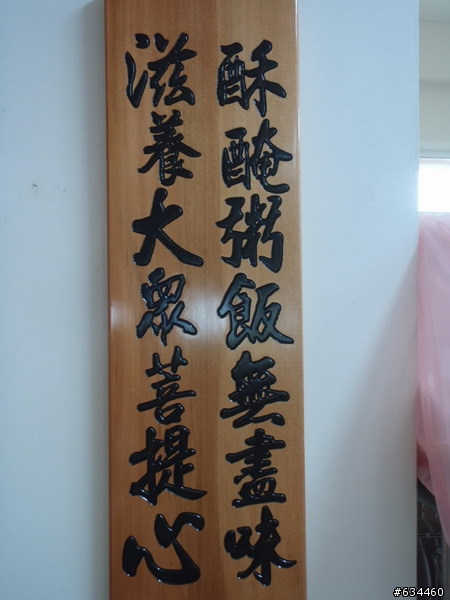 酥醃粥飯無盡味
滋養大眾菩提心
#634460